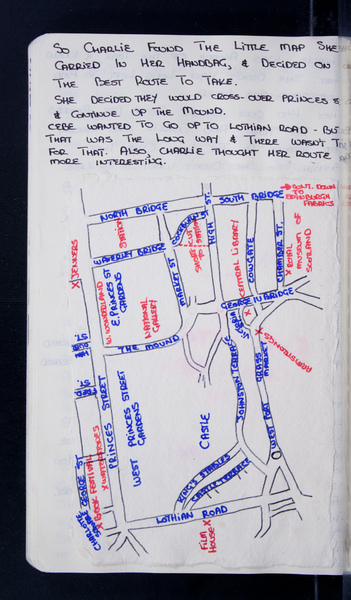 So Charlie found the little map she
carried in her handbag, & decided on
the best route to take.
She decided they would cross-over Princes S
& continue up the Mound.
Cebe wanted to go up to Lothian Road - but
that was the long way & there wasn't
for that. Also, Charlie thought her route
more interesting.
South Bridge
North Bridge
Station
Cockburn St
High St
Short Cut Station
Central Library
Cowgate
Chamber St.
Royal Museum of Scotland
Edinburgh Fabrics
X Jenners
Waverley Bridge
Market St
W. Wonderland
E. Princes St Gardens
National Gallery
George IV Bridge
Victoria St
X Armstrongs
The Mound
Princes Street
West Princes Street Gardens
Johnston Terrace
Grass Market
West Port
Castle
George St
Charlotte Square
X Book Festival
X Waterstones
King's Stables
Castle Terrace
Lothian Road
Film House X